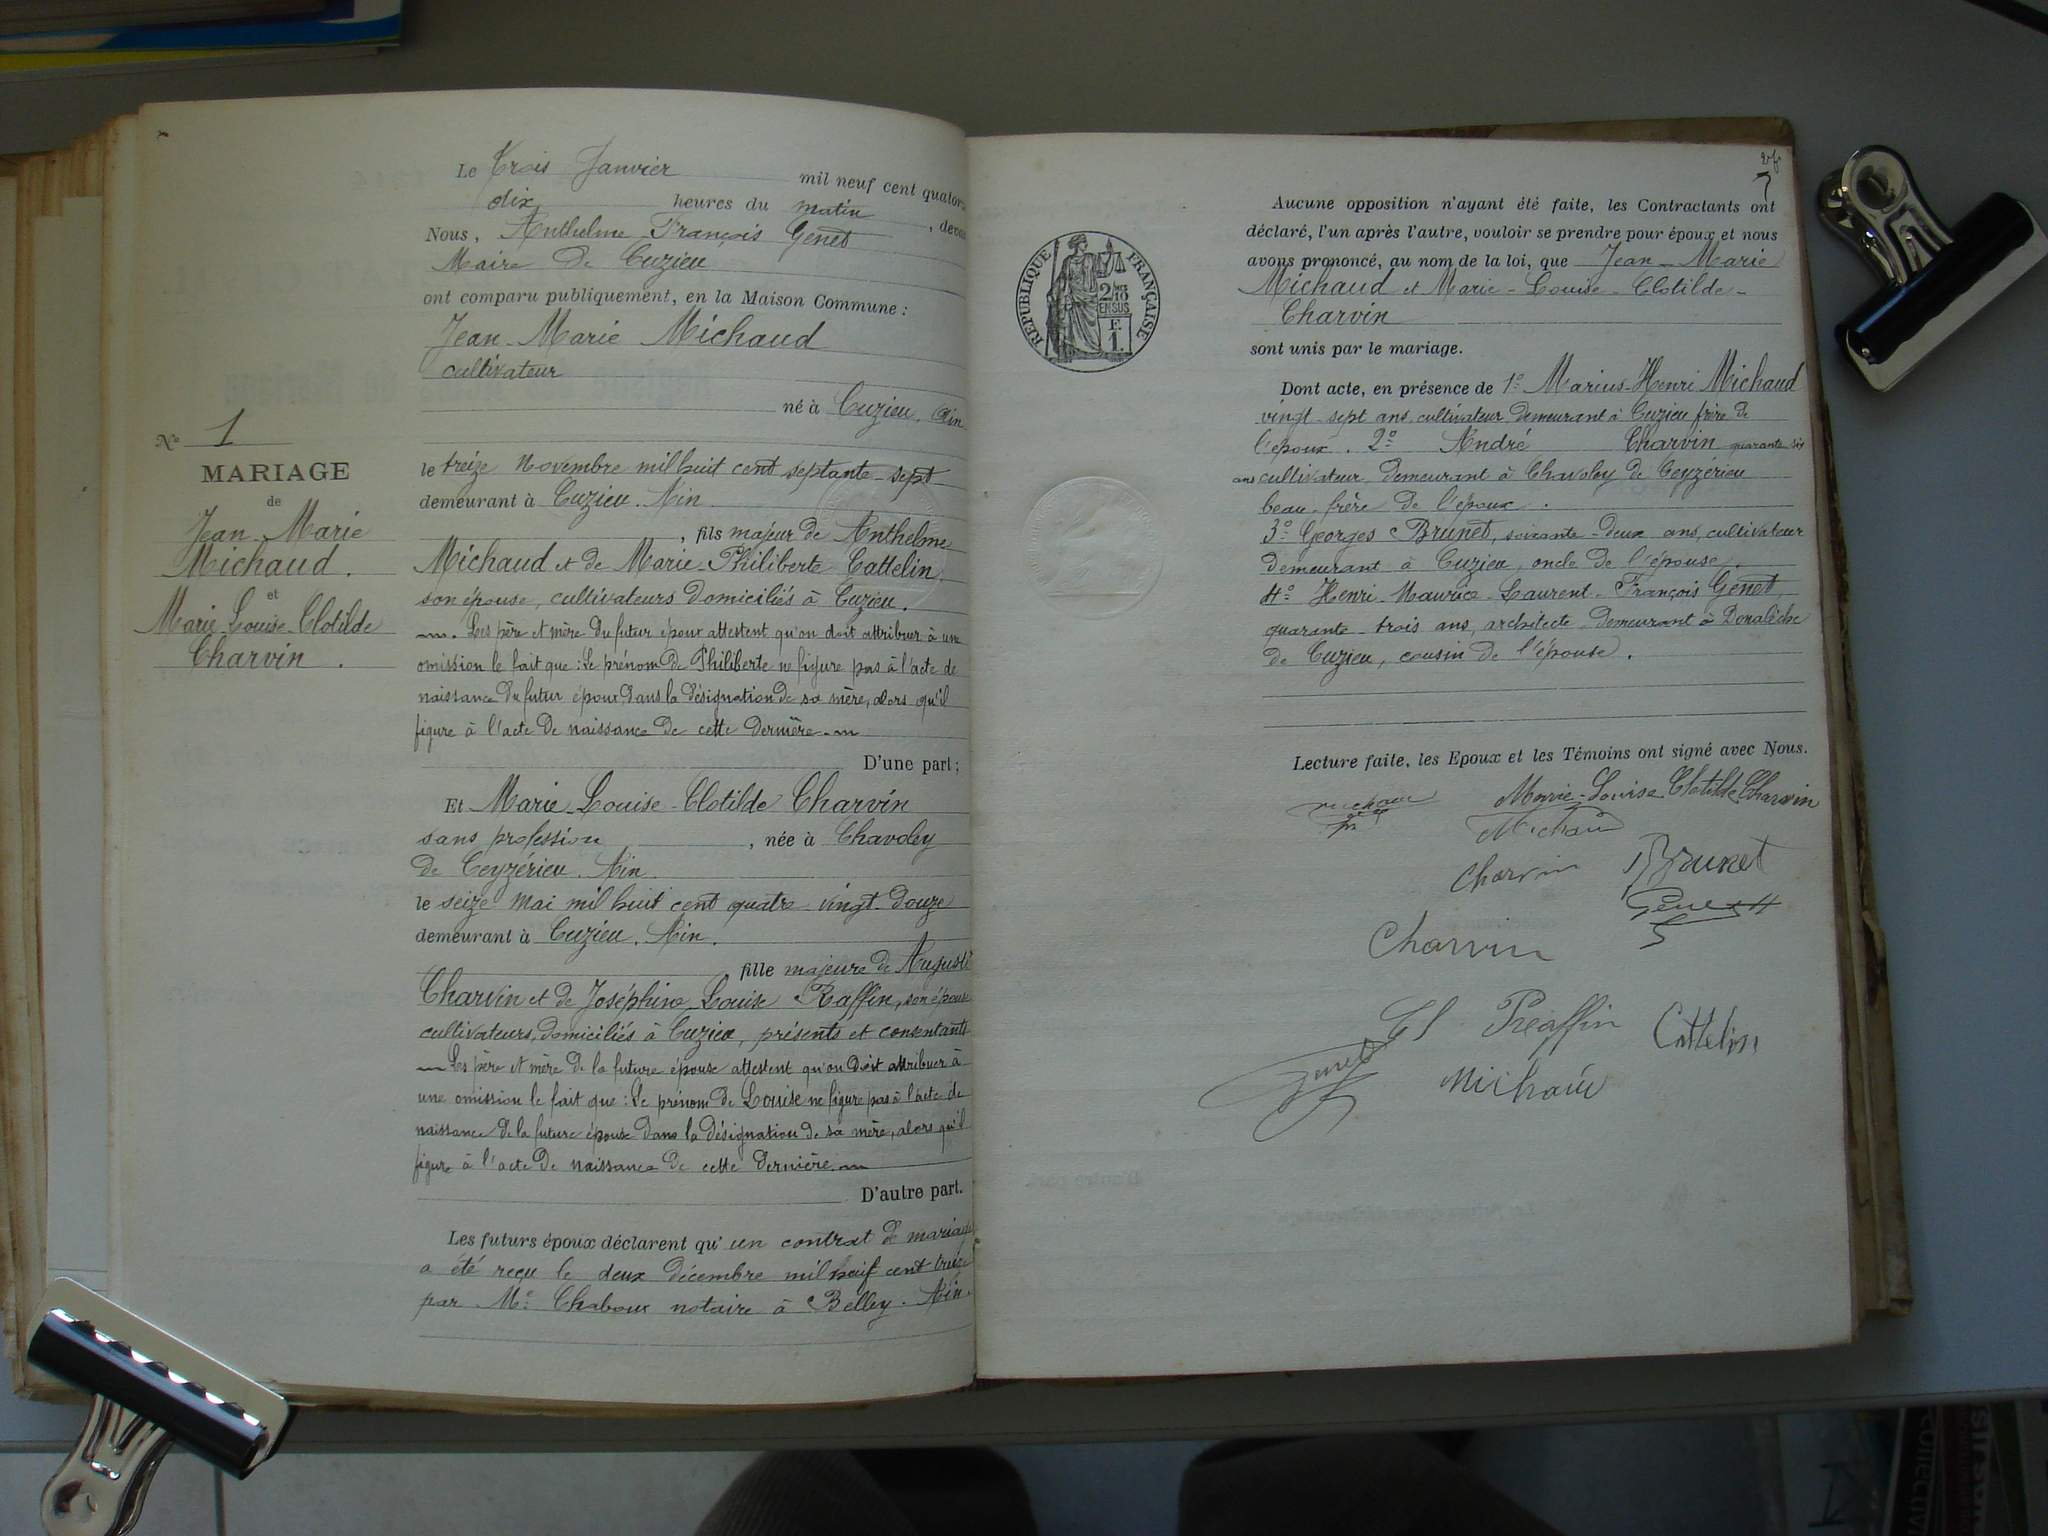 Le Trois Janvier mil neuf cent quator
dix heures du matin, devan
Nous, Anthelme François Genet
Maire de Cuzieu
ont comparu publiquement, en la Maison Commune :
Jean-Marie Michaud
cultivateur
né à Cuzieu, Ain
le treize Novembre mil huit cent septante-sept
demeurant à Cuzieu. Ain
, fils majeur de Anthelme
Michaud et de Marie-Philiberte Cattelin
son épouse, cultivateurs domiciliés à Cuzieu.
Les père et mère du futur époux attestent qu'on doit attribuer à une
omission le fait que : Le prénom de Philiberte ne figure pas à l'acte de
naissance du futur époux dans la désignation de sa mère, alors qu'il
figure à l'acte de naissance de cette dernière.
D'une part ;
Et Marie-Louise-Clotilde Charvin
sans profession, née à Chavoley
de Ceyzérieu. Ain.
le seize Mai mil huit cent quatre-vingt-douze
demeurant à Cuzieu. Ain.
fille majeure de Auguste
Charvin et de Joséphine Louise Raffin, son épouse
cultivateurs, domiciliés à Cuzieu, présents et consentants
Les père et mère de la future épouse attestent qu'on doit attribuer à
une omission le fait que : Le prénom de Louise ne figure pas à l'acte de
naissance de la future épouse dans la désignation de sa mère, alors qu'il
figure à l'acte de naissance de cette dernière.
D'autre part.
Les futurs époux déclarent qu'un contrat de mariage
a été reçu le deux décembre mil neuf cent treize
par Me Chaboux notaire à Belley. Ain.
No 1
MARIAGE
de
Jean-Marie
Michaud.
et
Marie-Louise-Clotilde
Charvin.
7
RÉPUBLIQUE FRANÇAISE
2/10
EN SUS
F.
1.
Aucune opposition n'ayant été faite, les Contractants ont
déclaré, l'un après l'autre, vouloir se prendre pour époux et nous
avons prononcé, au nom de la loi, que Jean-Marie
Michaud et Marie-Louise-Clotilde-
Charvin
sont unis par le mariage.
Dont acte, en présence de 1o Marius-Henri Michaud
vingt-sept ans, cultivateur demeurant à Cuzieu frère de
l'époux. 2o André Charvin quarante-six
ans cultivateur demeurant à Chavoley de Ceyzérieu
beau-frère de l'époux.
3o Georges Brunet, soixante-deux ans, cultivateur
demeurant à Cuzieu, oncle de l'épouse.
4o Henri-Maurice-Laurent-François Genet,
quarante-trois ans, architecte demeurant à Donalèche
de Cuzieu, cousin de l'épouse.
Lecture faite, les Epoux et les Témoins ont signé avec Nous.
michaud Marie-Louise Clotilde Charvin
Michaud
Charvin Brunet
Genet H
Charvin
Raffin Cattelin
Genet Michaud